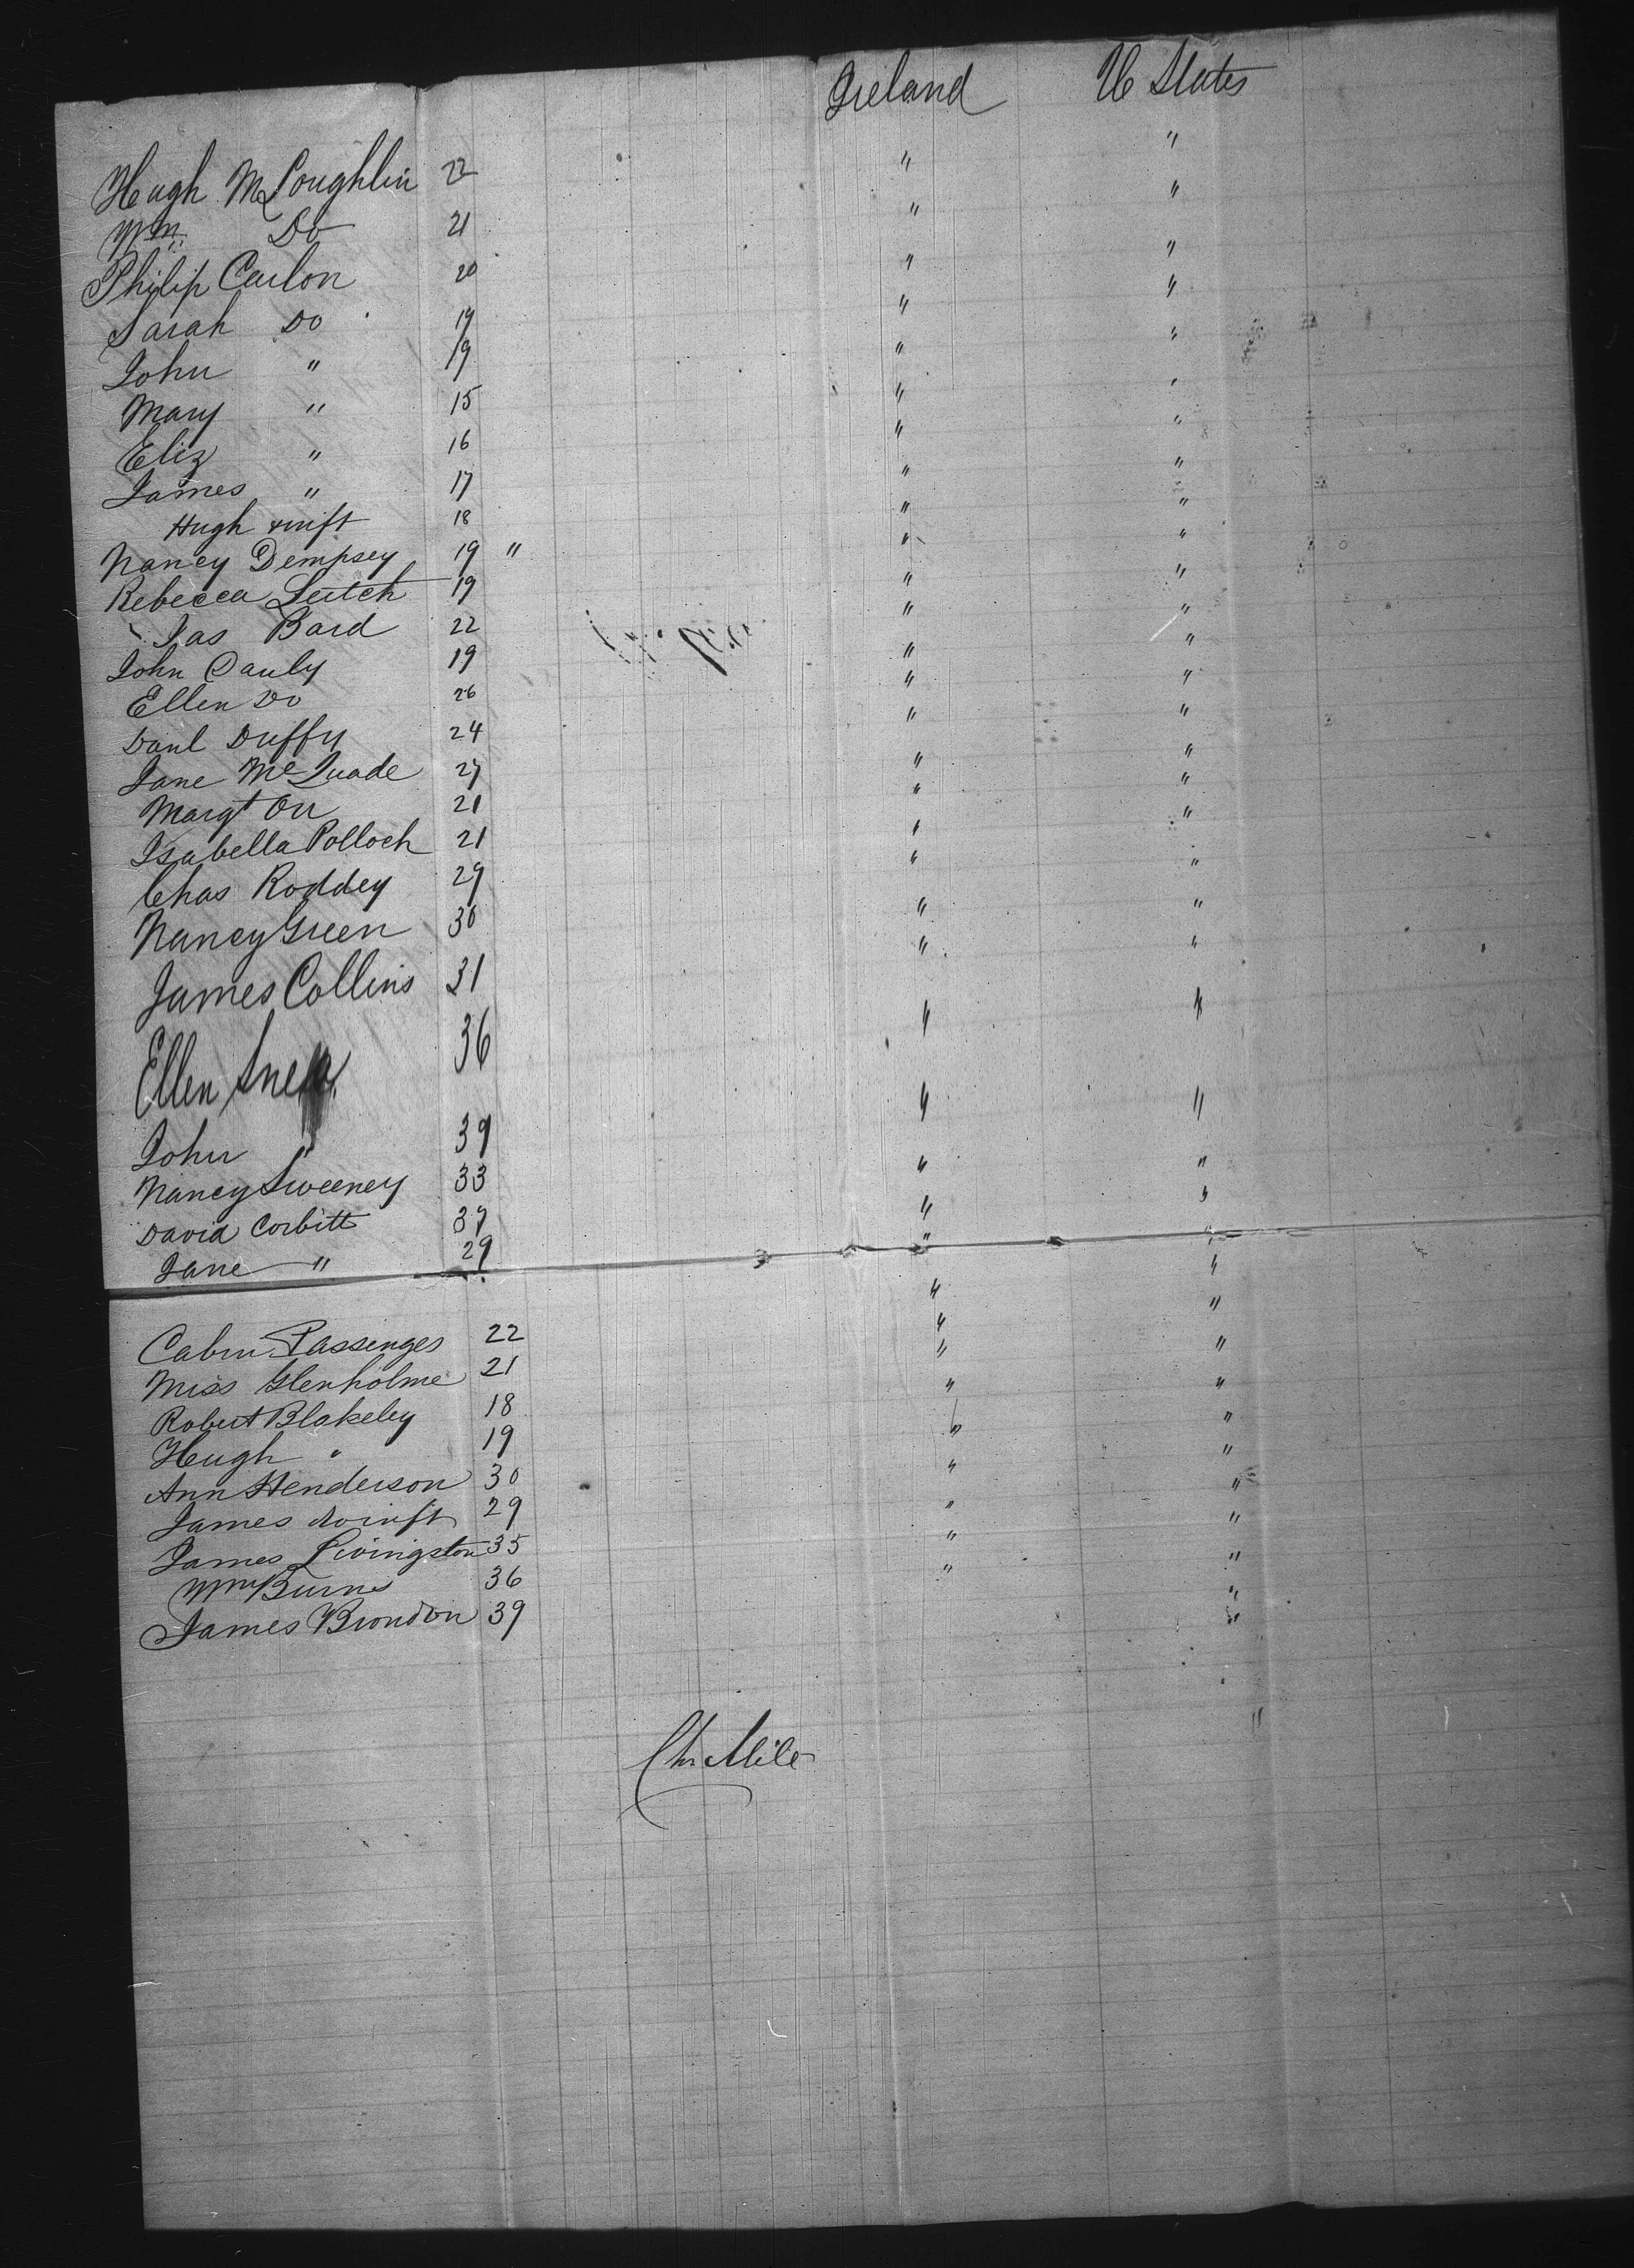 Ireland U States
Hugh McLoughlin 22 " "
Wm Do 21 " "
Philip Carlon 20 " "
Sarah Do 19 " "
John " 19 " "
Mary " 15 " "
Eliz " 16 " "
James " 17 " "
Hugh 18 " "
Nancy Dempsey 19 " " "
Rebecca Leitch 19 " "
Jas Bard 22 " "
John Cauly 19 " "
Ellen Do 26 " "
Danl Duffy 24 " "
Jane McQuade 27 " "
Margt Orr 21 " "
Isabella Polloch 21 " "
Chas Roddey 29 " "
Nancy Green 30 " "
James Collins 31 " "
Ellen 36 " "
John " 39 " "
Nancy Sweeney 33 " "
David Corbitt 37 " "
Jane " 29 " "
Cabin Passenges 22 " "
Miss Glenholme 21 " "
Robert Blakeley 18 " "
Hugh " 19 " "
Ann Henderson 30 " "
James 29 " "
James Livingston 35 " "
Wm Burns 36 " "
James Brondon 39 " "